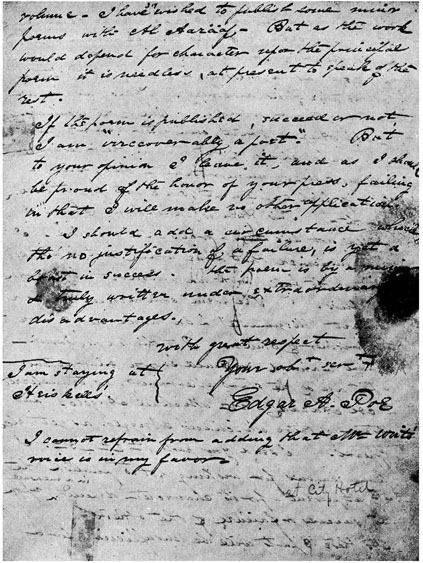 volume - I have wished to publish some minor
poems with Al Aaraaf - But as the work
would depend for character upon the principal
poem it is needless, at present to speak of the
rest.
If the poem is published, succeed or not,
I am "irrecoverably a poet." But
to your opinion I leave it, and as I should
be proud of the honor of your press, failing
in that I will make no other application.
I should add a circumstance which
tho' no justification of a failure, is yet a
boast in success. the poem is by a minor
& truly written under extraordinary
disadvantages.
with great respect
Your obt servt
I am staying at
Heiskells.
Edgar A. Poe
I cannot refrain from adding that Mr Wirt's
voice is in my favor
at City Hotel